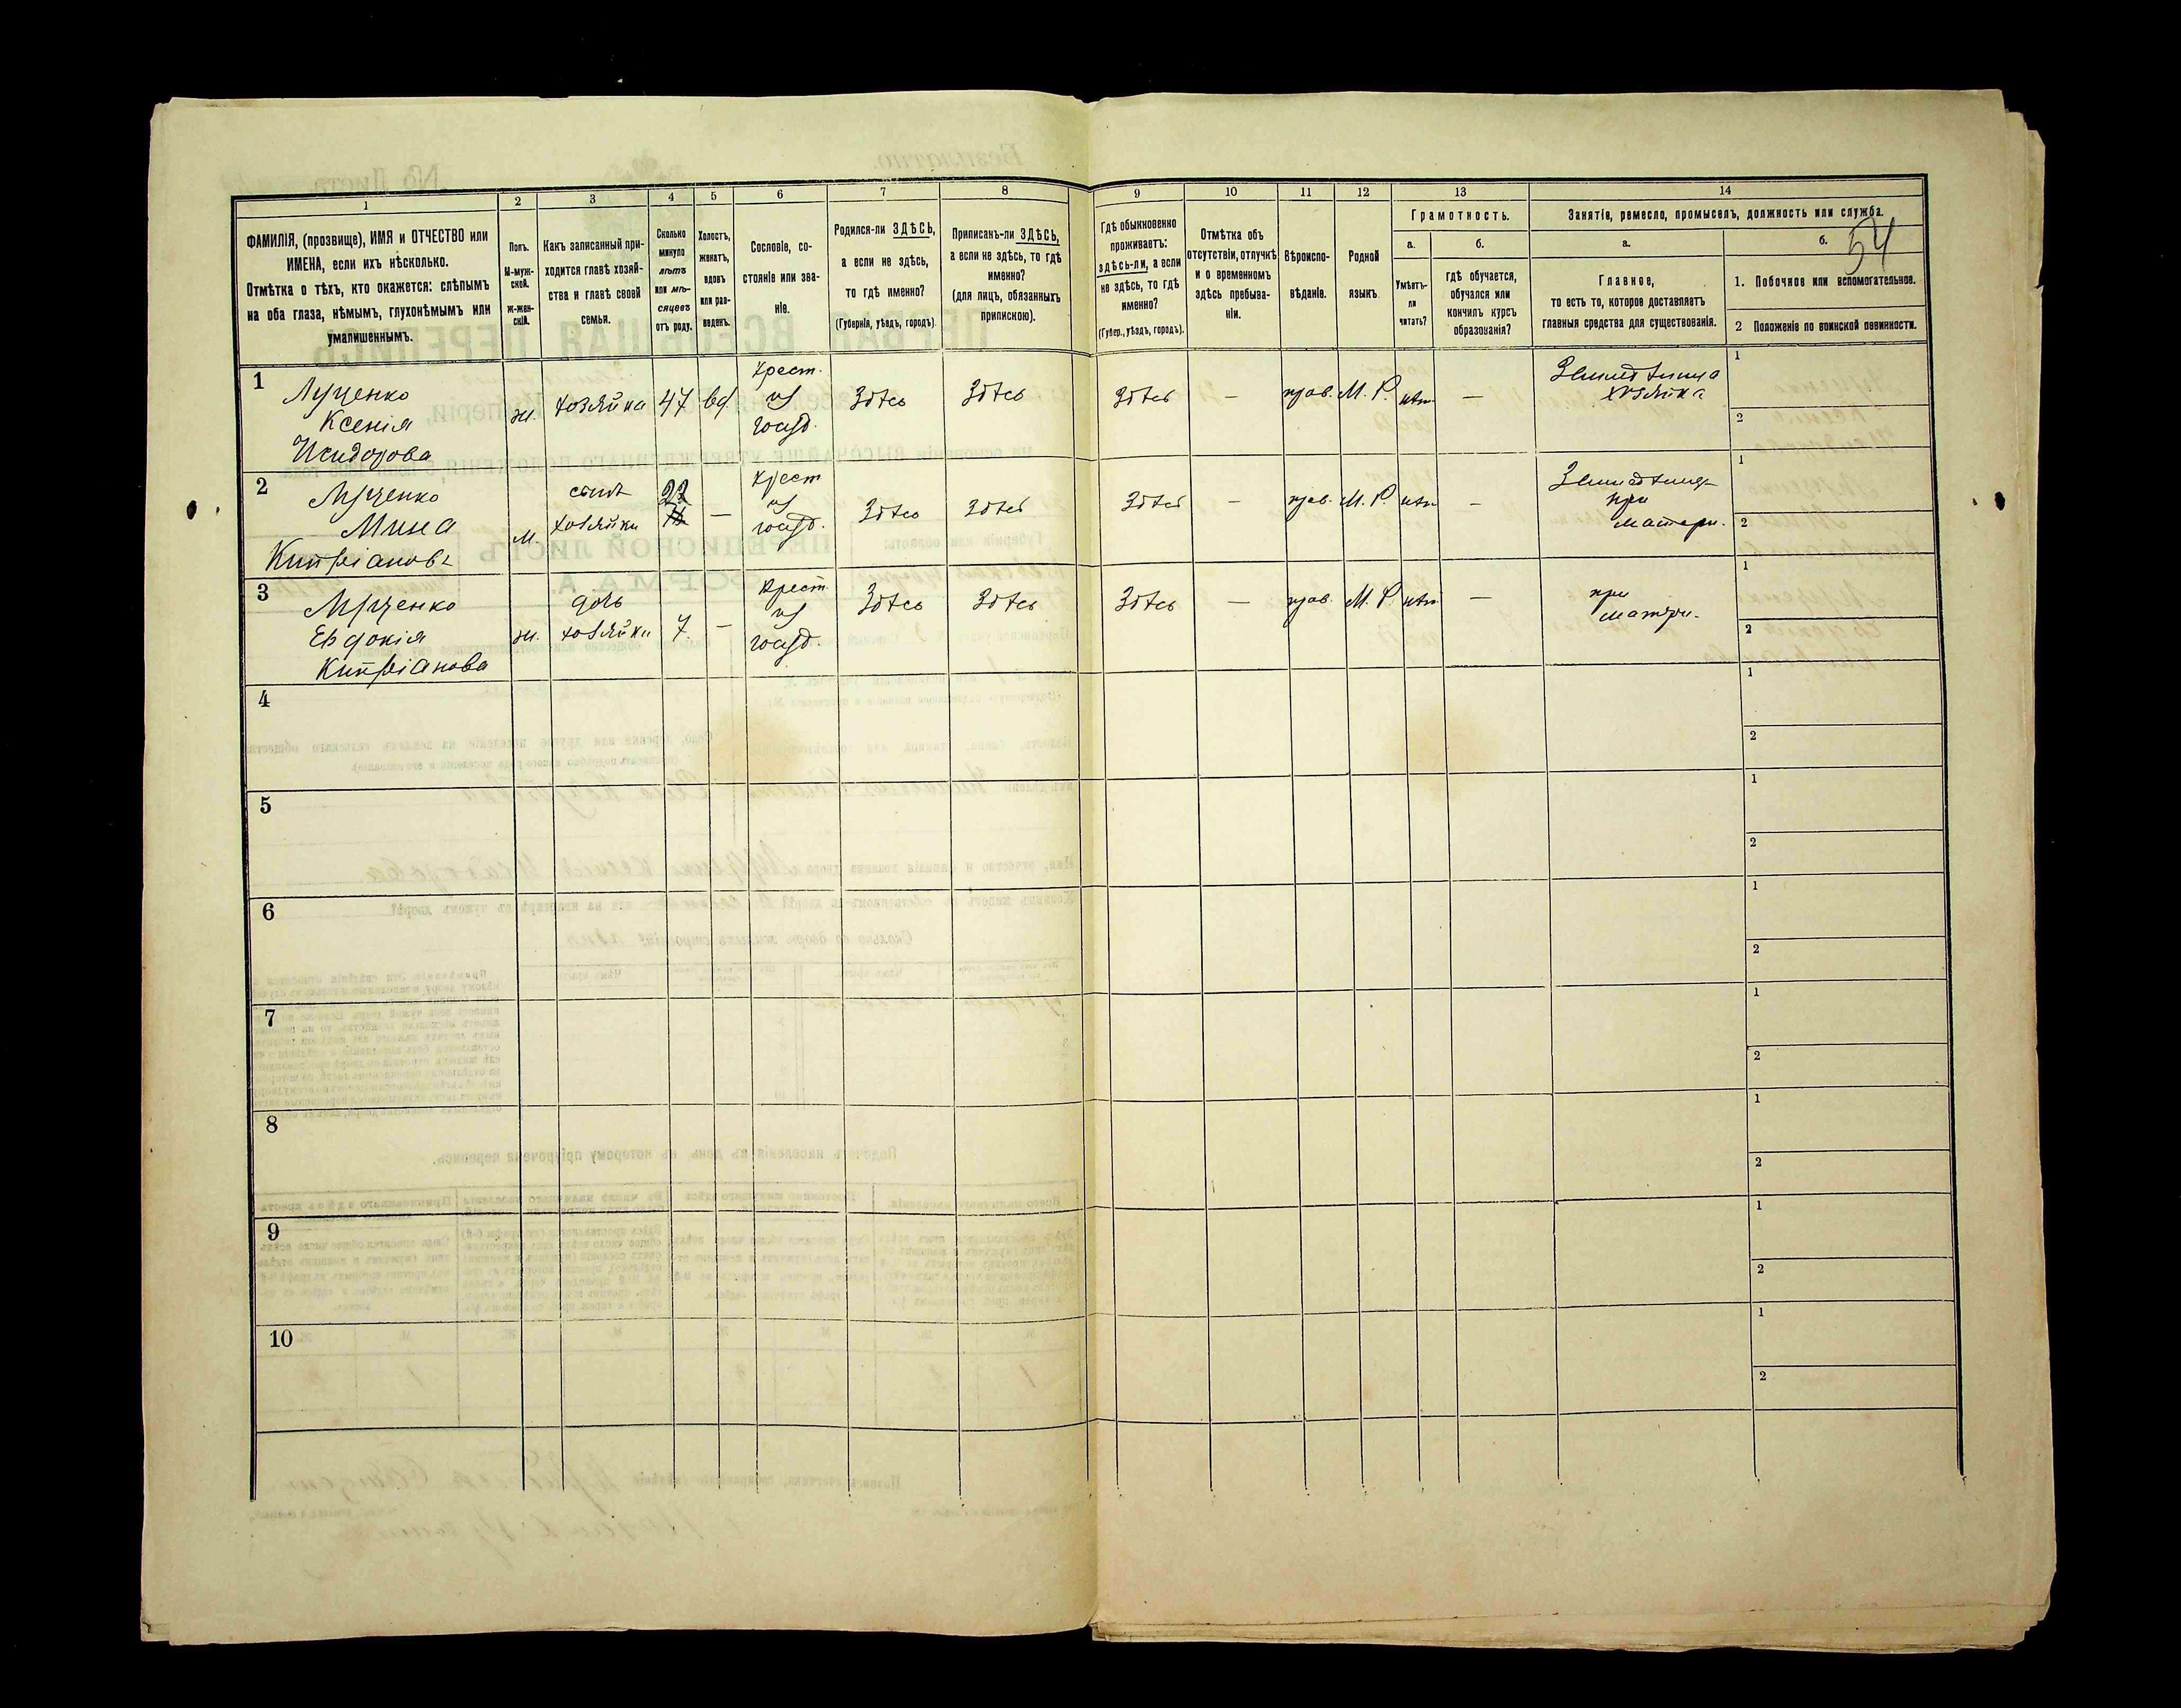 54
1 2 3 4 5 6 7 8 9 10 11 12 13 14
ФАМИЛІЯ, (прозвище), ИМЯ и ОТЧЕСТВО или
ИМЕНА, если ихъ нѣсколько.
Отмѣтка о тѣхъ, кто окажется: слѣпымъ
на оба глаза, нѣмымъ, глухонѣмымъ или
умалишеннымъ.
Полъ.
М-муж-
ской.
Ж-жен-
скій.
Какъ записанный при-
ходится главѣ хозяй-
ства и главѣ своей
семьи.
Сколько
минуло
лѣтъ
или мѣ-
сяцевъ
отъ роду.
Холостъ,
женатъ,
вдовъ
или раз-
веденъ.
Сословіе, со-
стояніе или зва-
ніе.
Родился-ли ЗДѢСЬ,
а если не здѣсь,
то гдѣ именно?
(Губернія, уѣздъ, городъ).
Приписанъ-ли ЗДѢСЬ,
а если не здѣсь, то гдѣ
именно?
(для лицъ, обязанныхъ
припискою).
Гдѣ обыкновенно
проживаетъ:
здѣсь-ли, а если
не здѣсь, то гдѣ
именно?
(Губер., уѣздъ, городъ).
Отмѣтка объ
отсутствіи, отлучкѣ
и о временномъ
здѣсь пребыва-
ніи.
Вѣроиспо-
вѣданіе.
Родной
языкъ.
Грамотность.
а.
Умѣетъ-
ли
читать?
б.
Гдѣ обучается,
обучался или
кончилъ курсъ
образованія?
Занятіе, ремесло, промыселъ, должность или служба.
а.
Главное,
то есть то, которое доставляетъ
главныя средства для существованія.
б.
1. Побочное или вспомогательное.
2 Положеніе по воинской повинности.
1
Луценко
Ксенія
Исидорова
ж.
хозяйка
47
вд.
крест.
из
госуд.
здѣсь
здѣсь
здѣсь
—
прав.
М. Р.
нѣт
—
Земледѣлица
хозяйка
1
2
2
Луценко
Мина
Кипріановъ
м.
сынъ
хозяйки
22
—
крест
из
госуд.
здѣсь
здѣсь
здѣсь
—
прав.
М. Р.
нѣт
—
при
матери.
1
2
3
Луценко
Евдокія
Кипріанова
ж.
дочь
хозяйки
7.
—
крест.
из
госуд.
здѣсь
здѣсь
здѣсь
—
прав.
М. Р.
нѣт
—
при
матери.
1
2
4
1
2
5
1
2
6
1
2
7
1
2
8
1
2
9
1
2
10
1
2